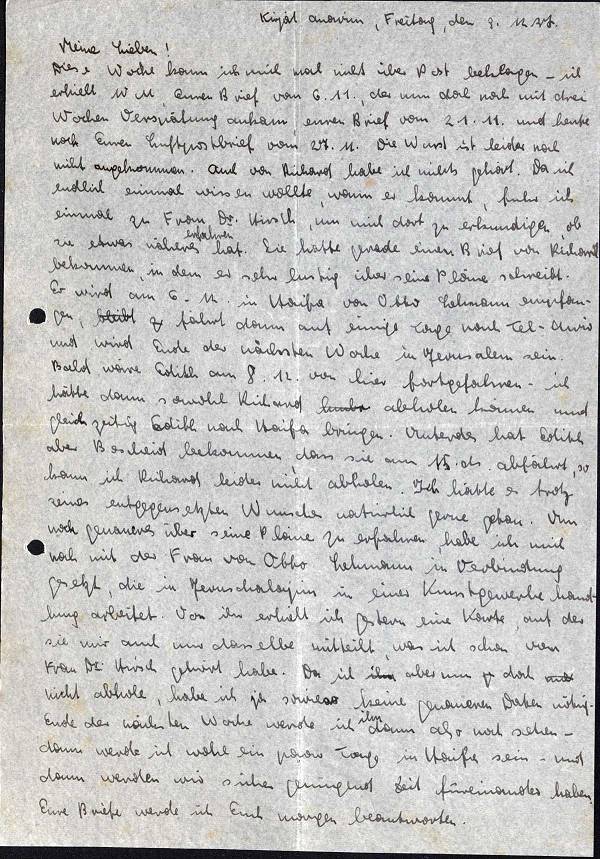 Kirjat Anavim, Freitag, den 3. 12. 37.
Meine Lieben!
Diese Woche kann ich mich noch nicht über Post beklagen - ich
erhielt Euren Brief vom 6.11., der nun doch noch mit drei
Wochen Verspätung ankam, euren Brief vom 21.11. und heute
noch Euren Luftpostbrief vom 27.11. Die Wurst ist leider noch
nicht angekommen. Auch von Richard habe ich nichts gehört. Da ich
endlich einmal wissen wollte, wann er kommt, fuhr ich
einmal zu Frau Dr. Hirsch, um mich dort zu erkundigen, ob
sie etwas näheres erfahren hat. Sie hatte gerade einen Brief von Richard
bekommen, in dem er sehr lustig über seine Pläne schreibt.
Er wird am 6. 12. in Haifa von Otto Lehmann empfan-
gen, fährt dann auf einige Tage nach Tel-Aviv
und wird Ende der nächsten Woche in Jerusalem sein.
Bald wäre Edith am 8. 12. von hier fortgefahren - ich
hätte dann sowohl Richard abholen können und
gleichzeitig Edith nach Haifa bringen. Unterdes hat Edith
aber Bescheid bekommen, dass sie am 15. ds. abfährt, so
kann ich Richard leider nicht abholen. Ich hätte es trotz
seines entgegensetzten Wunsches natürlich gerne getan. Um
noch genaueres über seine Pläne zu erfahren, habe ich mich
noch mit der Frau von Otto Lehmann in Verbindung
gesetzt, die in Jeruschalajim in einer Kunstgewerbehand-
lung arbeitet. Von ihr erhielt ich gestern eine Karte, auf der
sie mir auch nur dasselbe mitteilt, was ich schon von
Frau Dr. Hirsch gehört habe. Da ich aber nun ja doch
nicht abhole, habe ich ja sowieso keine genaueren Daten nötig.
Ende der nächsten Woche werde ich ihn dann also noch sehen -
dann werde ich wohl ein paar Tage in Haifa sein - und
dann werden wir sicher genügend Zeit füreinander haben.
Eure Briefe werde ich Euch morgen beantworten.